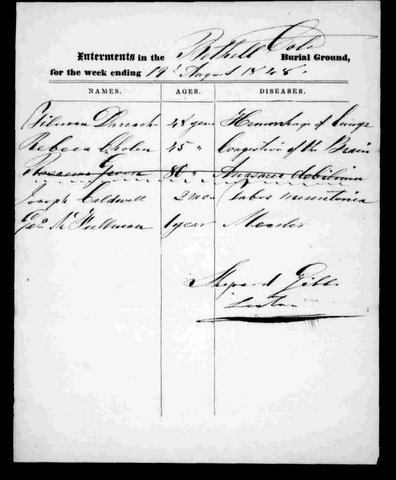 Interments in the Bethell Cold Burial Ground,
for the week ending 19th August 1848.
NAMES. AGES. DISEASES.
Tilman Darrach 48 years Hemorrhage of Lungs
Rebeca 45 " Congestion of the Brain
80 "
Joseph Caldwell 2 mos Tabes mesenterica
Geo McFullman 1 year Measles
Shepard Gibbs
Sexton